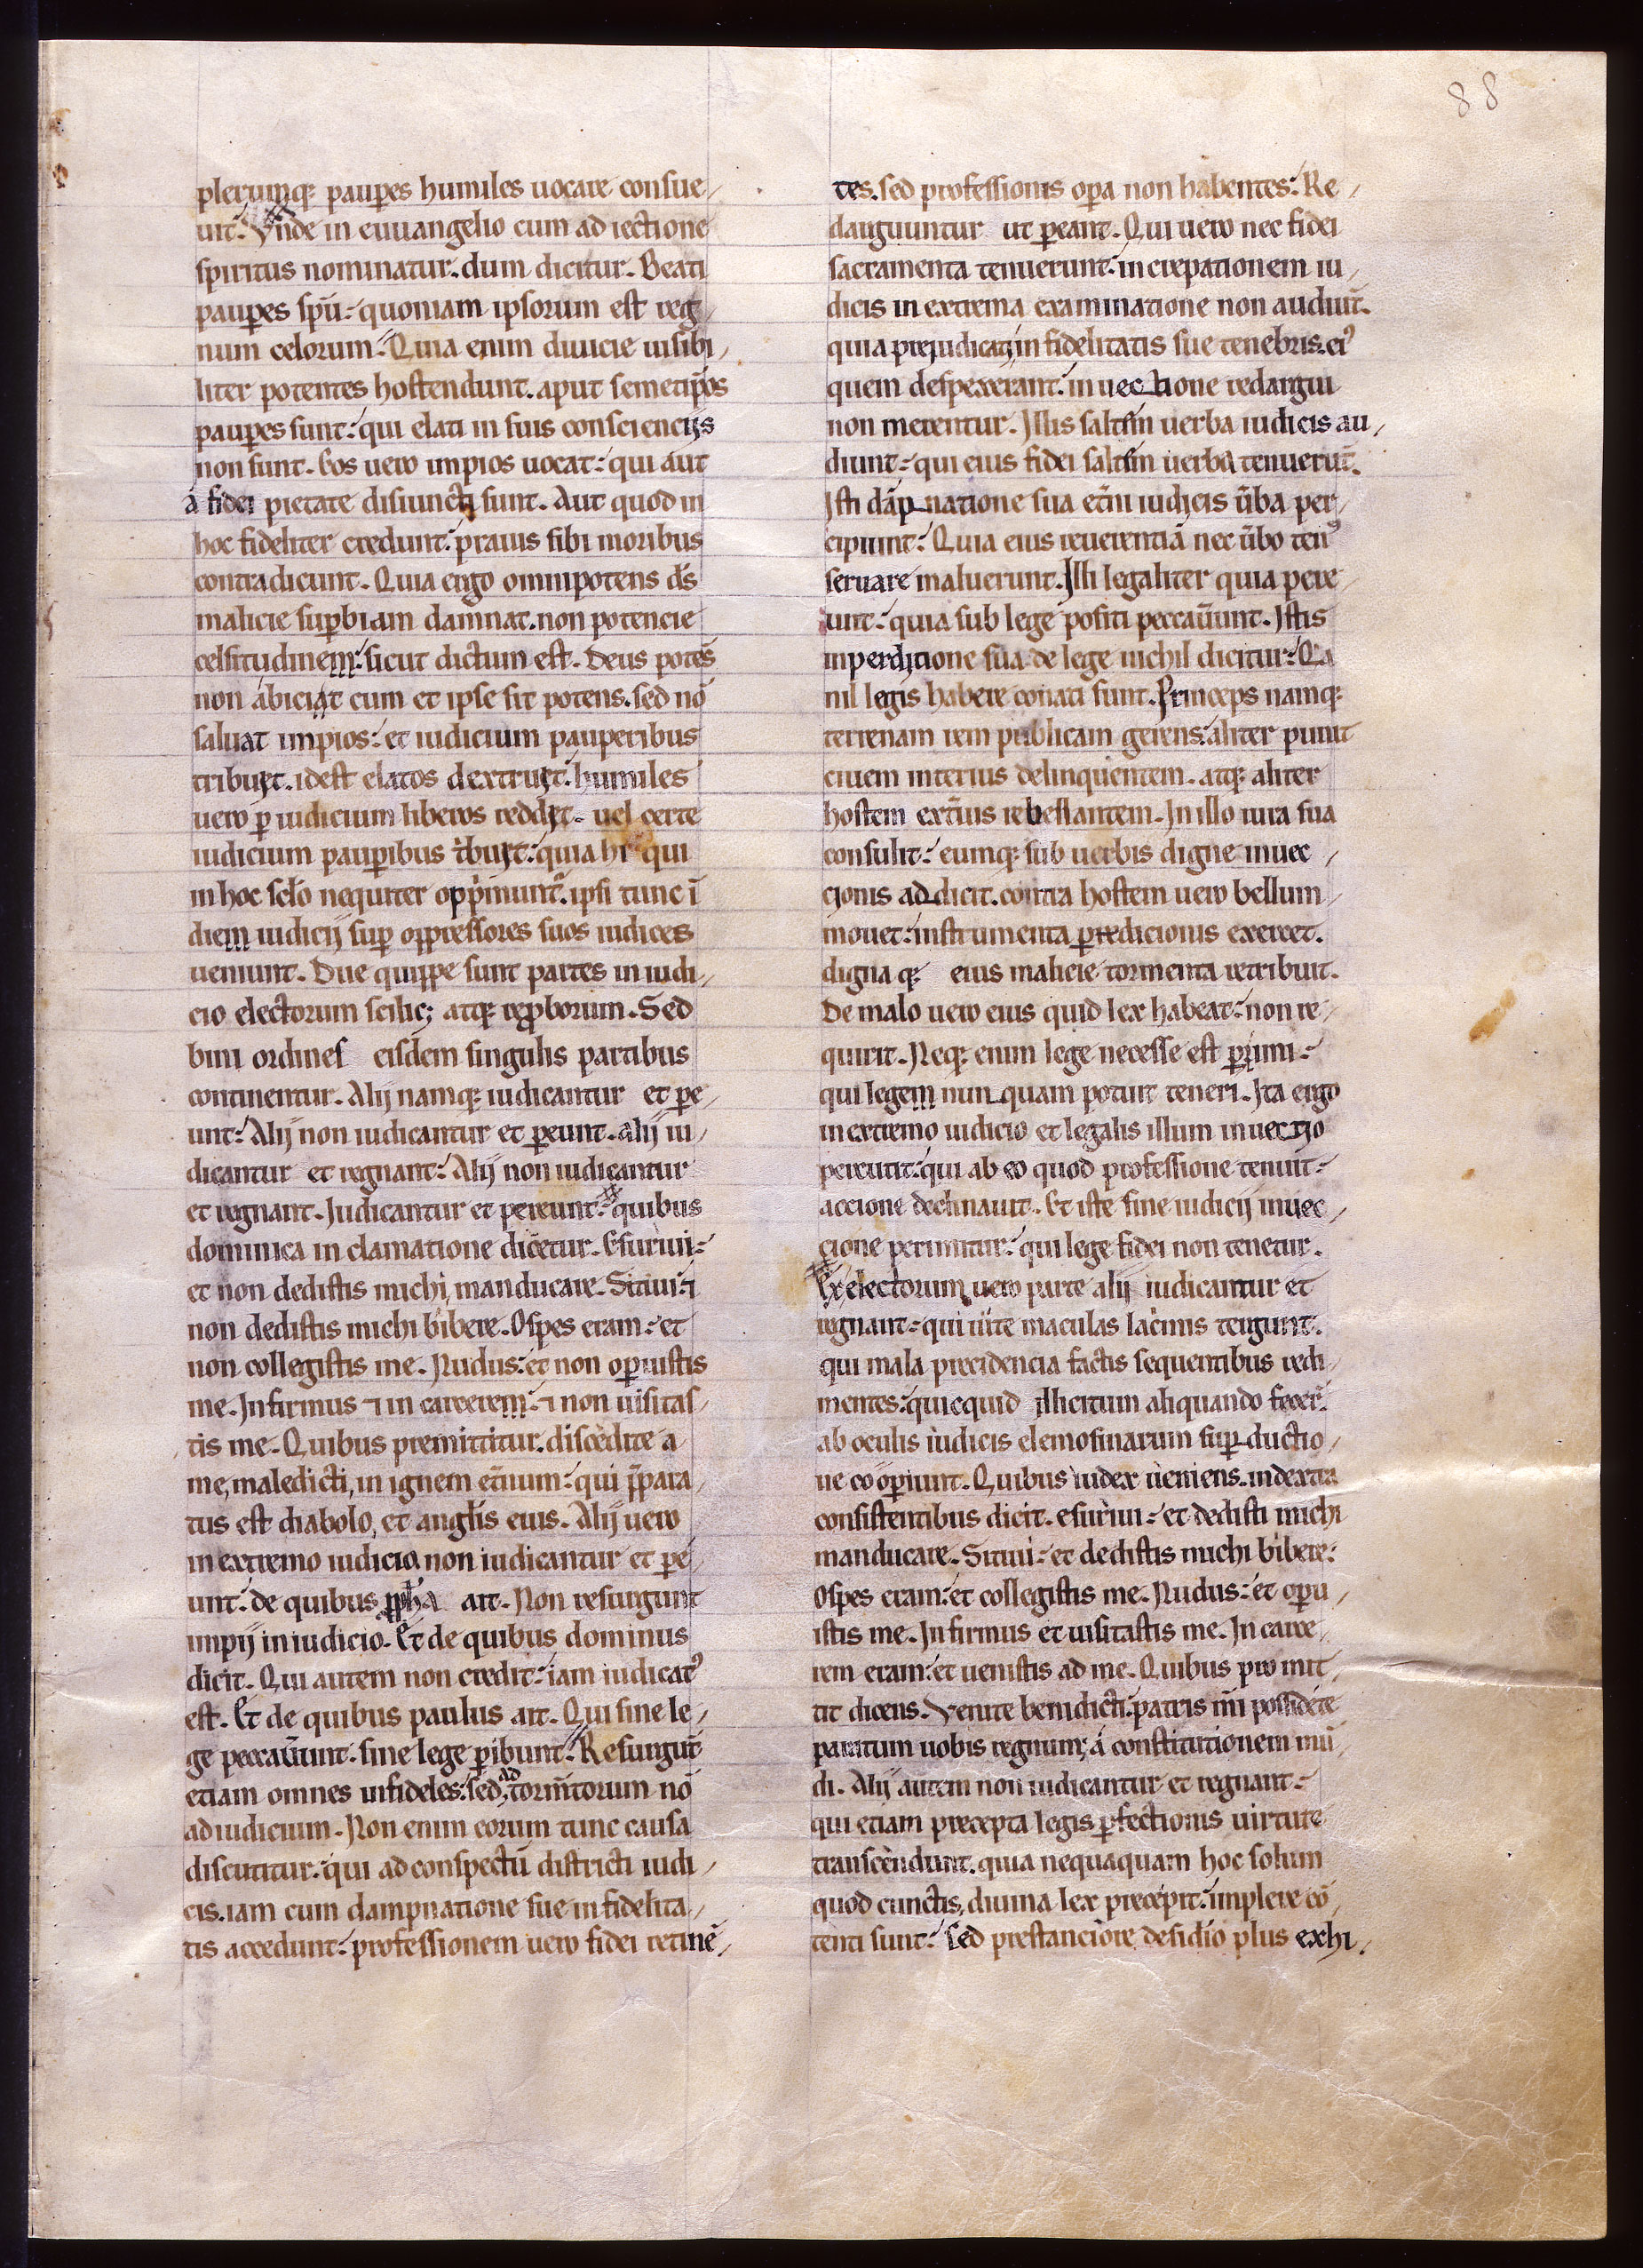 88
plerumq; paup̱es humiles uocare consue/
uit. Vnde in euuangelio cum ad iectione
spiritus nominatur. dum dicitur. Beati
paup̱es sp̅u: quoniam ipsorum est reg/
num celorum. Quia enim diuicie uisibi/
liter potentes hostendunt. aput semetip̅os
paup̱es sunt: qui elati in suis consciencijs
non sunt. Eos uero impios uocat: qui aut
a fidei pietate disiuncti sunt. Aut quod in
hoc fideliter credunt: prauis sibi moribus
contradicunt. Quia ergo omnipotens d̅s
malicie sup̱biam damnat. non potencie
celsitudinem: sicut dictum est. Deus potes̅
non abiciat cum et ipse sit potens. sed no̅
saluat impios: et iudicium pauperibus
tribuit. idest elatos dextruit. humiles
uero p̱ iudicium liberos reddit. uel certe
iudicium paup̱ibus t̛buit: quia hi qui
in hoc sc̅lo nequiter opp̛munt̛. ipsi tunc i̅
diem iudicij sup̱ oppressores suos iudices
ueniunt. Due quippe sunt partes in iudi/
cio electorum scilic; atq; rep̱borum. Sed
bini ordines eisdem singulis partibus
continentur. Alij namq; iudicantur et pe/
unt: Alij non iudicantur et p̱eunt. alij iu/
dicantur et regnant: Alij non iudicantur
et regnant. Iudicantur et pereunt: quibus
dominica in clamatione dicetur. Esuriui:
et non dedistis michi manducare. Sitiui: ⁊
non dedistis michi bibere. Ospes eram: et
non collegistis me. Nudus: et non op̱uistis
me. Infirmus ⁊ in carcerem: ⁊ non uisitas/
tis me. Quibus premittitur. discedite a
me, maledicti, in ignem et̅num: qui p̅para/
tus est diabolo, et angl̅is eius. Alij uero
in extremo iudicio non iudicantur et pe/
unt: de quibus pp̅ha ait. Non resurgunt
impij in iudicio. Et de quibus dominus
dicit. Qui autem non credit: iam iudicat᾽
est. Et de quibus paulus ait. Qui sine le/
ge peccau̅unt. sine lege p̱ibunt. Resurgu̅t
etiam omnes infideles: sed ad torm̅torum no̅
ad iudicium. Non enim eorum tunc causa
discutitur: qui ad conspectu̅ districti iudi/
cis. iam cum dampnatione sue in fidelita/
tis accedunt: professionem uero fidei retine̅/
tes. sed professionis op̱a non habentes: Re/
darguuntur ut p̱eant. Qui uero nec fidei
sacramenta tenuerunt: increpationem iu/
dicis in extrema examinatione non audiu̅t.
quia prejudicati in fidelitatis sue tenebris. ei᾽
quem despexerant: inuectione redargui
non merentur. Illis saltim uerba iudicis au/
diunt: qui eius fidei saltim uerba tenueru̅t.
Isti da̅pnatione sua et̅ni iudicis u̅ba per/
cipiunt: Quia eius reuerentia̅ nec u̅bo ten᾽
seruare maluerunt. Illi legaliter quia pere/
unt: quia sub lege positi peccau̅unt. Istis
in perditione sua de lege nichil dicitur: Qa
nil legis habere conati sunt. Princeps namq;
terrenam rem publicam gerens: aliter punit
ciuem interius delinquentem. atq; aliter
hostem ext̅ius rebellantem. In illo iura sua
consulit: eumq; sub uerbis digne inuec/
cionis addicit. contra hostem uero bellum
mouet: instrumenta p̱dicionis exercet.
digna q; eius malicie tormenta retribuit.
De malo uero eius quid lex habeat: non re/
quirit. Neq; enim lege necesse est p̱imi:
qui legem nun quam potuit teneri. Ita ergo
in extremo iudicio et legalis illum inuectio
percutit: qui ab eo quod professione tenuit:
accione declinauit. Et iste sine iudicij inuec/
cione perimitur: qui lege fidei non tenetur.
Ex electorum uero parte alij iudicantur et
regnant: qui uite maculas lacimis tergunt.
qui mala precidencia factis sequentibus redi/
mentes: quicquid illicitum aliquando fecer̅:
ab oculis iudicis elemosinarum sup̱ ductio/
ne coop̱iunt. Quibus iudex ueniens. in dextra
consistentibus dicit. esuriui: et dedisti michi
manducare. Sitiui: et dedistis michi bibere:
Ospes eram: et collegistis me. Nudus: et op̱u/
istis me. Infirmus et uisitastis me. In carce/
rem eram: et uenistis ad me. Quibus pro mit
tit dicens. Venite benidicti patris m̅i possidete
paratum uobis regnum, a constitutionem mu̅/
di. Alij autem non iudicantur et regnant:
qui etiam precepta legis p̱fectionis uirtute
transcendunt. quia nequaquam hoc solum
quod cunctis, diuina lex precepit: implere co̅/
tenti sunt: sed prestanciore desidio plus exhi/